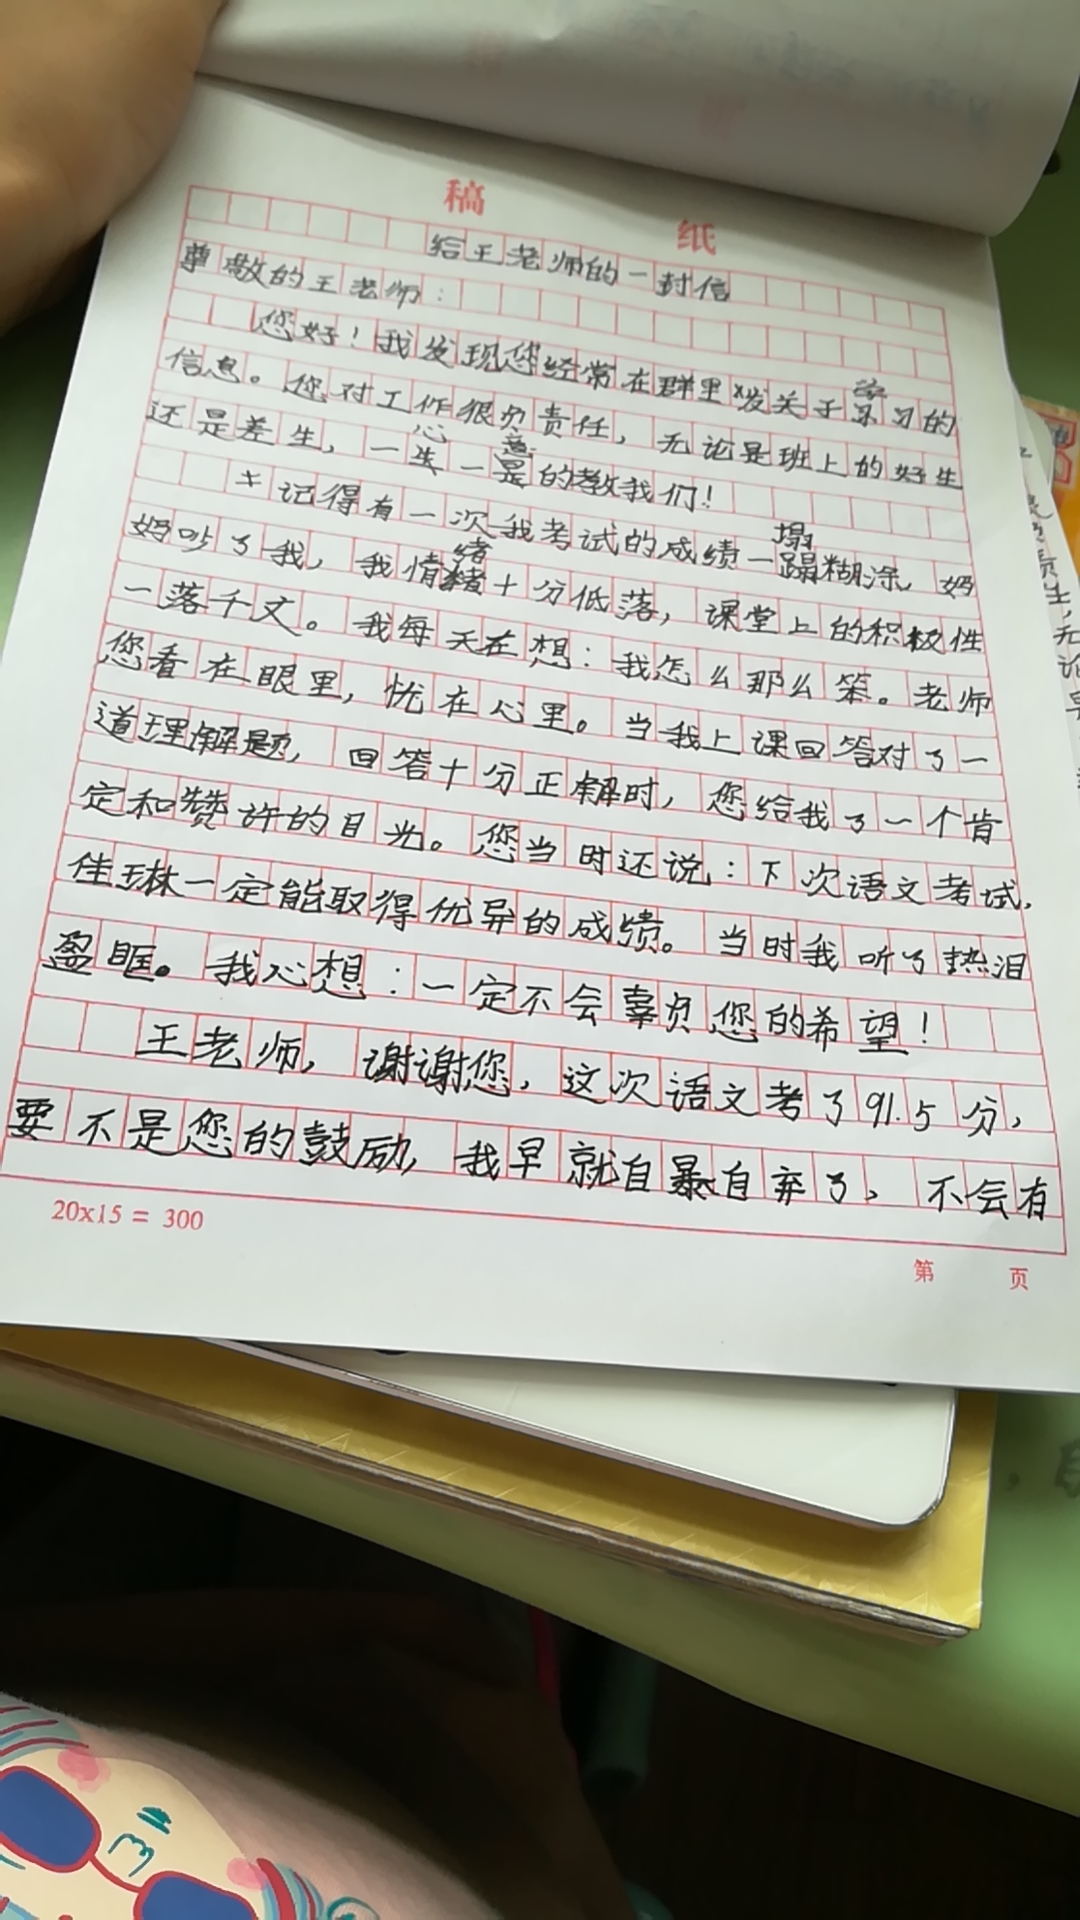 稿 纸
给王老师的一封信
尊敬的王老师：
您好！我发现您经常在群里发关于学习的
信息。您对工作很负责任，无论是班上的好生
还是差生，一心一意的教我们！
记得有一次我考试的成绩一塌糊涂，妈
妈吵了我，我情绪十分低落，课堂上的积极性
一落千丈。我每天在想：我怎么那么笨。老师
您看在眼里，忧在心里。当我上课回答对了一
道理解题，回答十分正解时，您给我了一个肯
定和赞许的目光。您当时还说：下次语文考试，
佳琳一定能取得优异的成绩。当时我听了热泪
盈眶。我心想：一定不会辜负您的希望！
王老师，谢谢您，这次语文考了91.5分，
要不是您的鼓励，我早就自暴自弃了，不会有
20x15 = 300
第 页